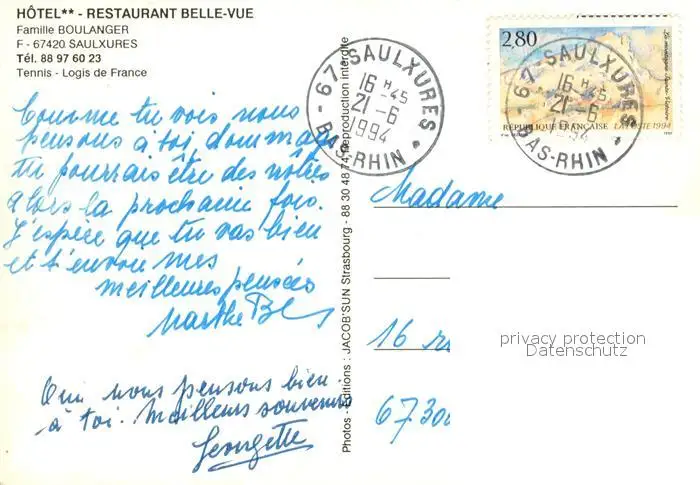 HÔTEL** - RESTAURANT BELLE-VUE
Famille BOULANGER
F - 67420 SAULXURES
Tél. 88 97 60 23
Tennis - Logis de France
Comme tu vois nous
pensons à toi, dommage
tu pourrais être des nôtres
alors la prochaine fois.
J'espère que tu vas bien
et t'envoie mes
meilleures pensées
Marthe
Oui nous pensons bien
à toi. Meilleurs souvenirs
Georgette
Photos - Editions : JACOB'SUN Strasbourg - 88 30 48 74 Reproduction interdite
67 SAULXURES
16 H 45
21-6
1994
BAS-RHIN
2,80
REPUBLIQUE FRANÇAISE LA POSTE 1994
67 SAULXURES
16 H 45
21-6
1994
BAS-RHIN
Madame
16
67300
privacy protection
Datenschutz